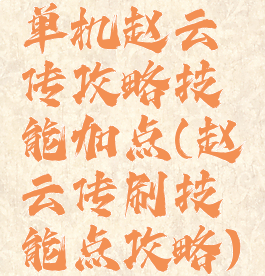 单机赵云
传攻略技
能加点(赵
云传刷技
能点攻略)